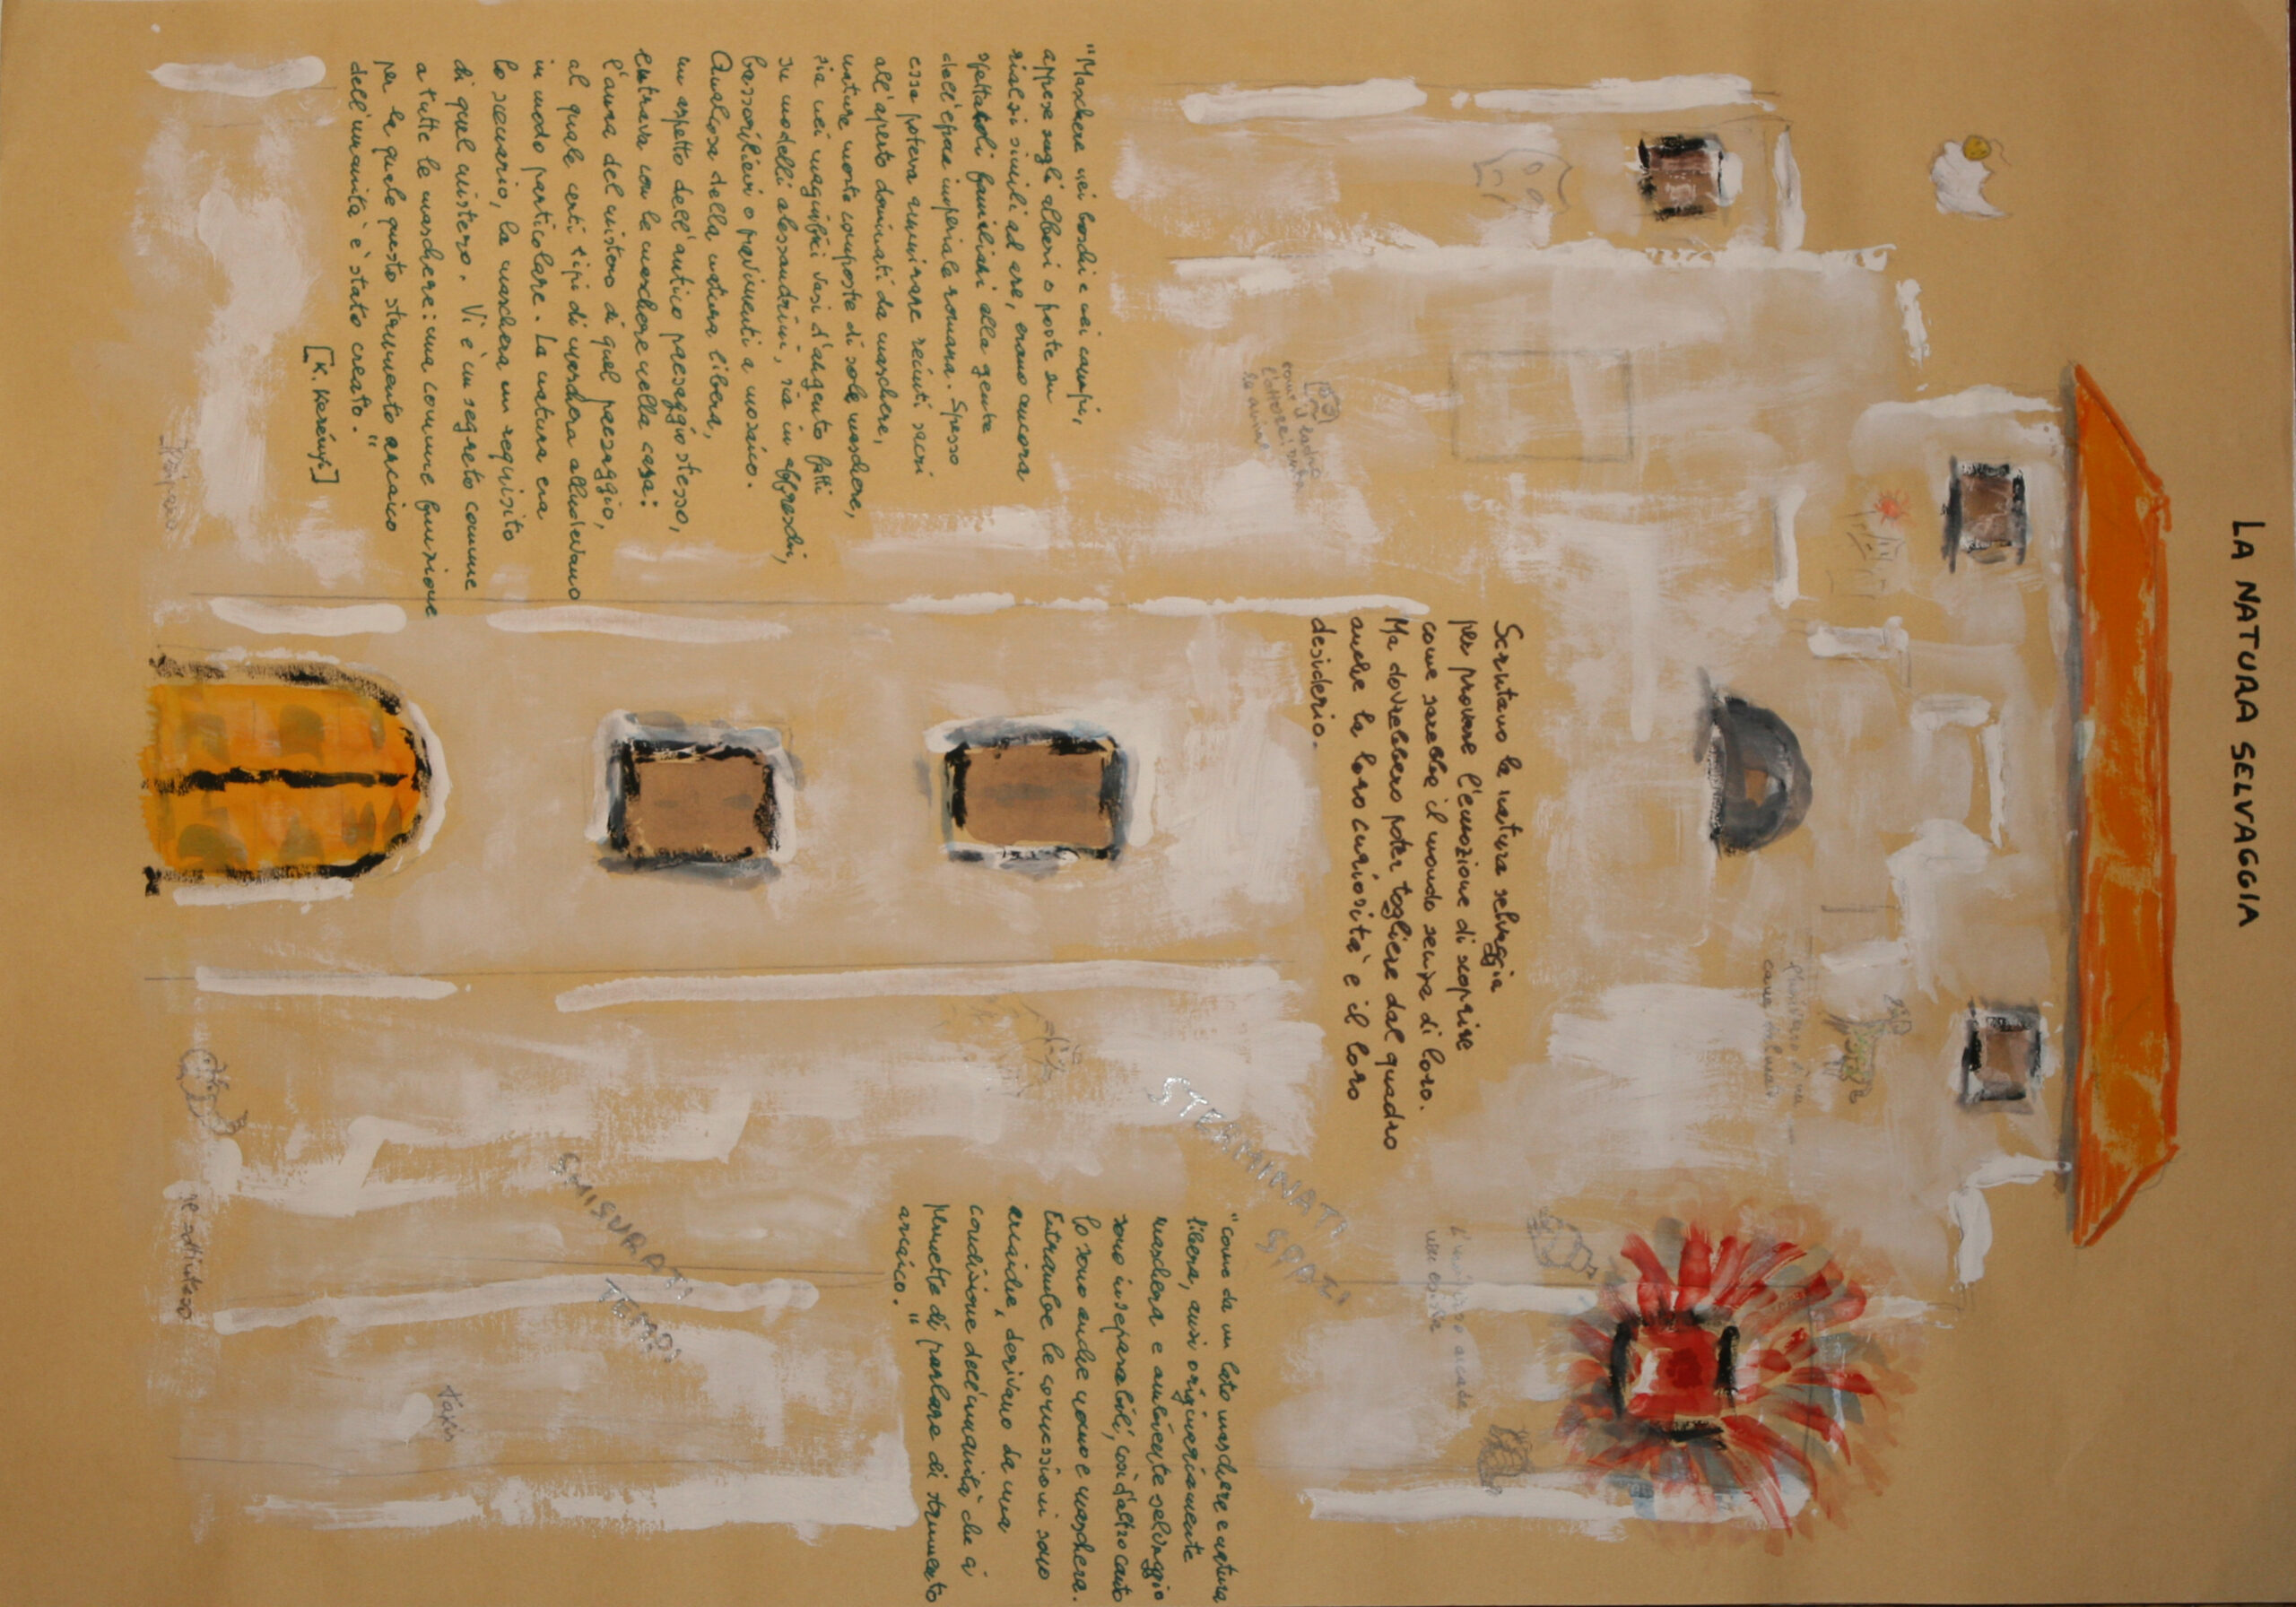 LA NATURA SELVAGGIA
"Maschere nei boschi e nei campi,
appese sugli alberi o poste su
rialzi simili ad are, erano ancora
spettacoli familiari alla gente
dell'epoca imperiale romana. Spesso
essa poteva ammirare recinti sacri
all'aperto dominati da maschere,
nature morte composte di sole maschere,
sia nei magnifici vasi d'argento fatti
su modelli alessandrini, sia in affreschi,
bassorilievi o pavimenti a mosaico.
Qualcosa della natura libera,
un aspetto dell'antico paesaggio stesso,
entrava con le maschere nella casa:
l'aura del mistero di quel paesaggio,
al quale certi tipi di maschera alludevano
in modo particolare. La natura era
lo scenario, la maschera un requisito
di quel mistero. Vi è un segreto comune
a tutte le maschere: una comune funzione
per la quale questo strumento arcaico
dell'umanità è stato creato."
[K. Kerényi]
Scrutano la natura selvaggia
per provare l'emozione di scoprire
come sarebbe il mondo senza di loro.
Ma dovrebbero poter togliere dal quadro
anche la loro curiosità e il loro
desiderio.
STERMINATI
SPAZI
SMISURATI
TEMPI
"come da un lato maschere e natura
libera, anzi originariamente
maschera e ambiente selvaggio
sono inseparabili, così d'altro canto
lo sono anche uomo e maschera.
Entrambe le connessioni sono
arcaiche, derivano da una
condizione dell'umanità che ci
permette di parlare di strumento
arcaico."
come il
l'attore
Il sottinteso
Taxis